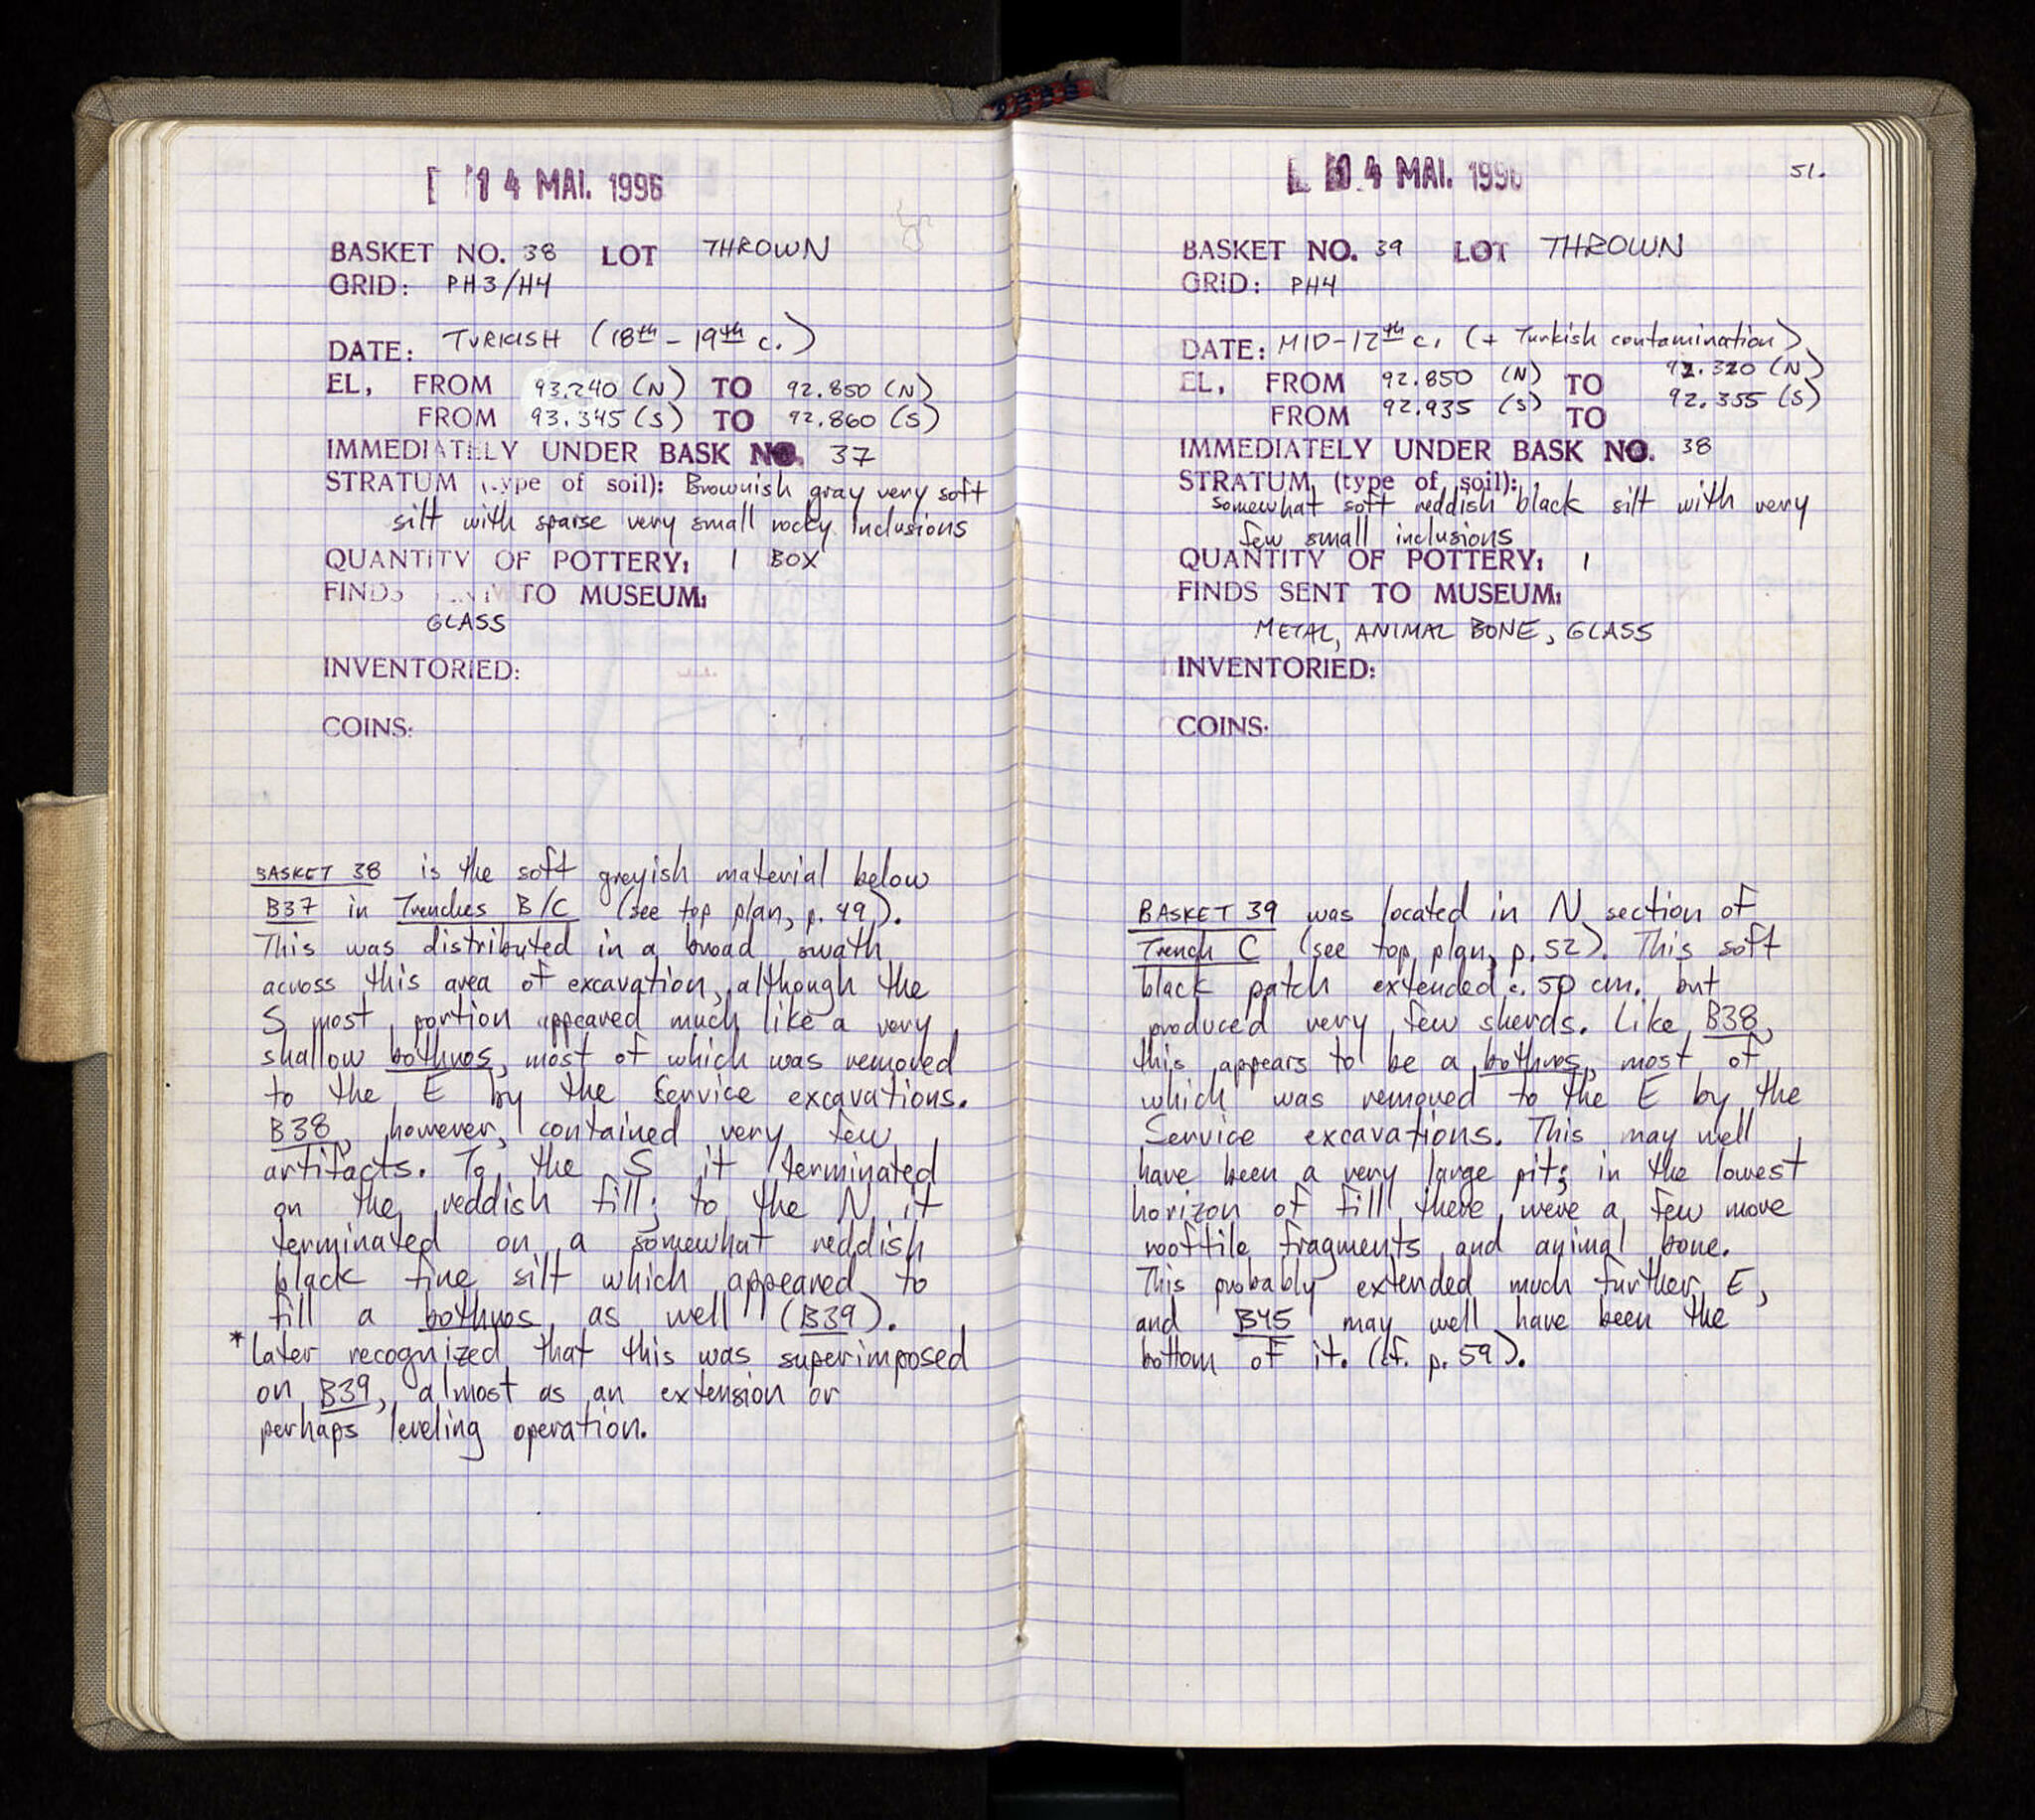 14 MAI. 1996
BASKET NO. 38 LOT THROWN
GRID: PH3/H4
DATE: TURKISH (18th - 19th c.)
EL, FROM 93.240 (N) TO 92.850 (N)
FROM 93.345 (S) TO 92.860 (S)
IMMEDIATELY UNDER BASK NO. 37
STRATUM (type of soil): Brownish gray very soft
silt with sparse very small rocky inclusions
QUANTITY OF POTTERY: 1 BOX
FINDS SENT TO MUSEUM:
GLASS
INVENTORIED:
COINS:
BASKET 38 is the soft greyish material below
B37 in Trenches B/C (see top plan, p. 49).
This was distributed in a broad swath
across this area of excavation, although the
S most portion appeared much like a very
shallow bothros, most of which was removed
to the E by the Service excavations.
B38, however, contained very few
artifacts. To the S it terminated
on the reddish fill; to the N it
terminated on a somewhat reddish
black fine silt which appeared to
fill a bothros as well (B39).
*Later recognized that this was superimposed
on B39, almost as an extension or
perhaps leveling operation.
4 MAI. 1996
51.
BASKET NO. 39 LOT THROWN
GRID: PH4
DATE: MID-12th c. (+ Turkish contamination)
EL, FROM 92.850 (N) TO 92.320 (N)
FROM 92.935 (S) TO 92.355 (S)
IMMEDIATELY UNDER BASK NO. 38
STRATUM (type of soil):
somewhat soft reddish black silt with very
few small inclusions
QUANTITY OF POTTERY: 1
FINDS SENT TO MUSEUM:
METAL, ANIMAL BONE, GLASS
INVENTORIED:
COINS:
BASKET 39 was located in N section of
Trench C (see top plan, p. 52). This soft
black patch extended c. 50 cm. but
produced very few sherds. Like B38,
this appears to be a bothros, most of
which was removed to the E by the
Service excavations. This may well
have been a very large pit; in the lowest
horizon of fill there were a few more
rooftile fragments and animal bone.
This probably extended much further E,
and B45 may well have been the
bottom of it. (cf. p. 59).